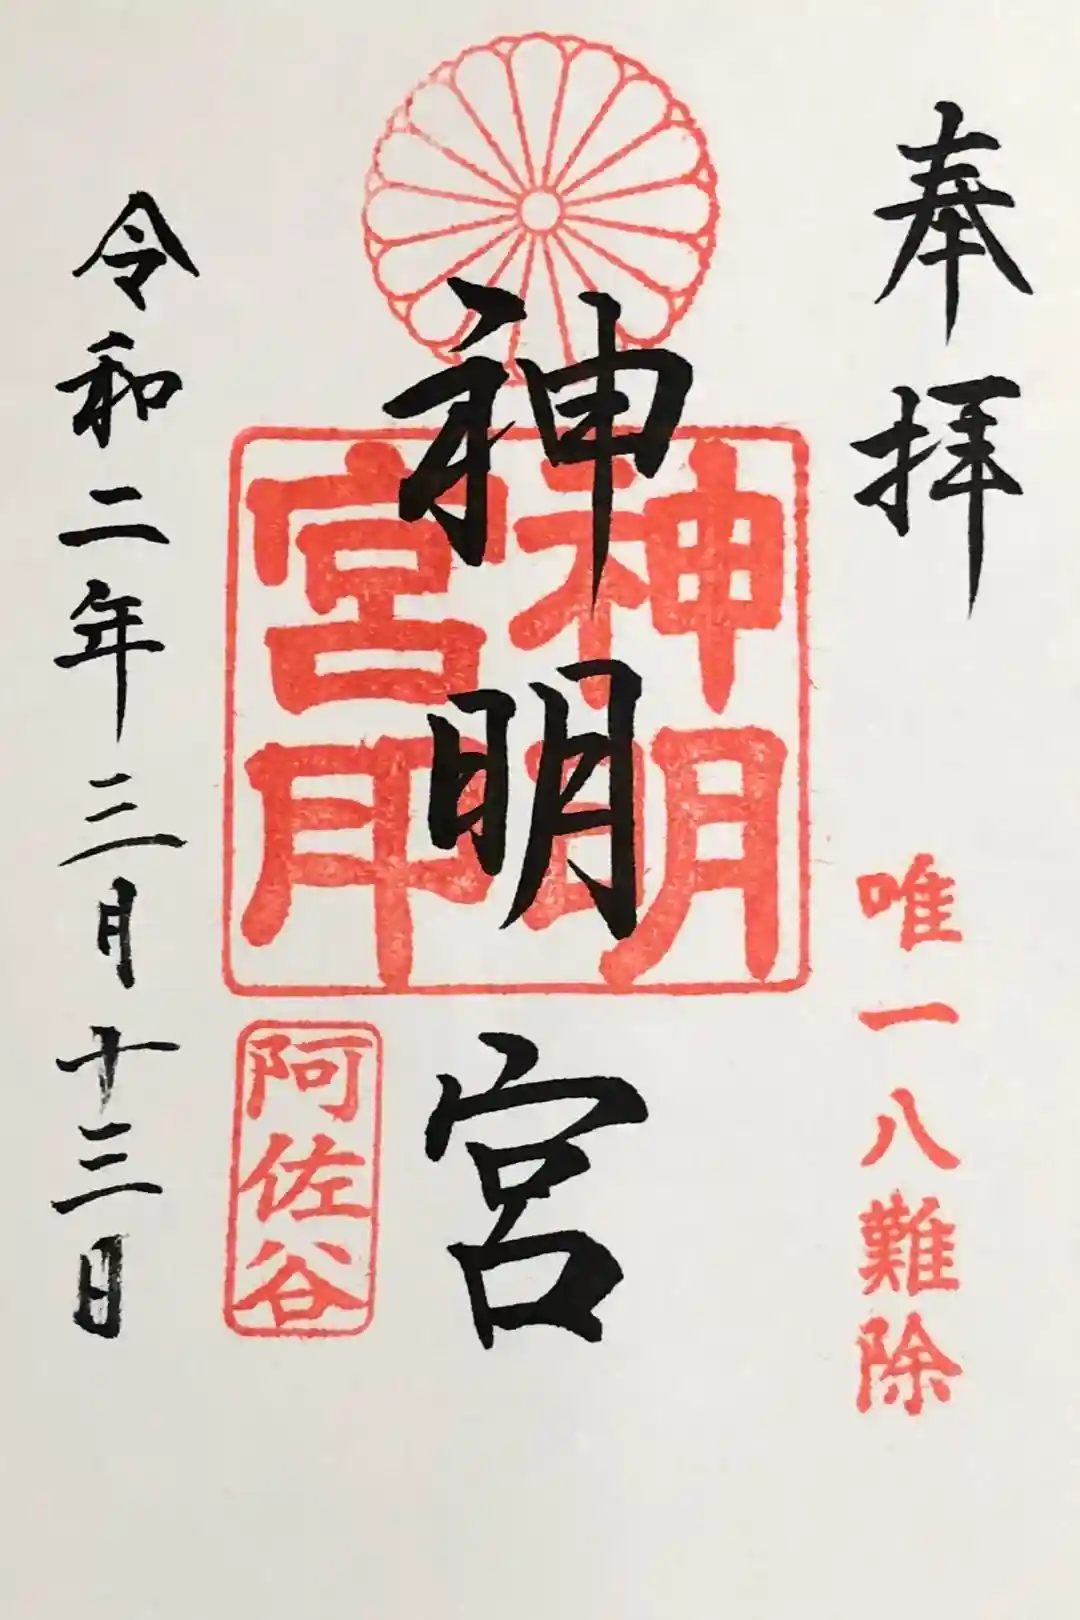 奉拝
唯一八難除
神明宮
神明
宮印
阿佐谷
令和二年三月十三日